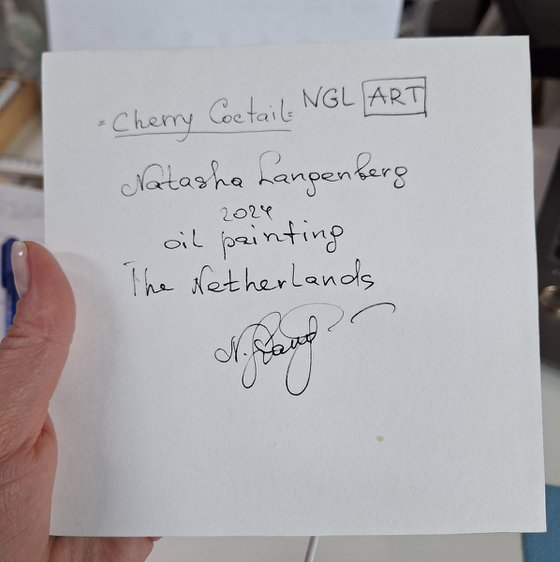 "Cherry Coctail" NGL ART
Natasha Langenberg
2024
oil painting
The Netherlands